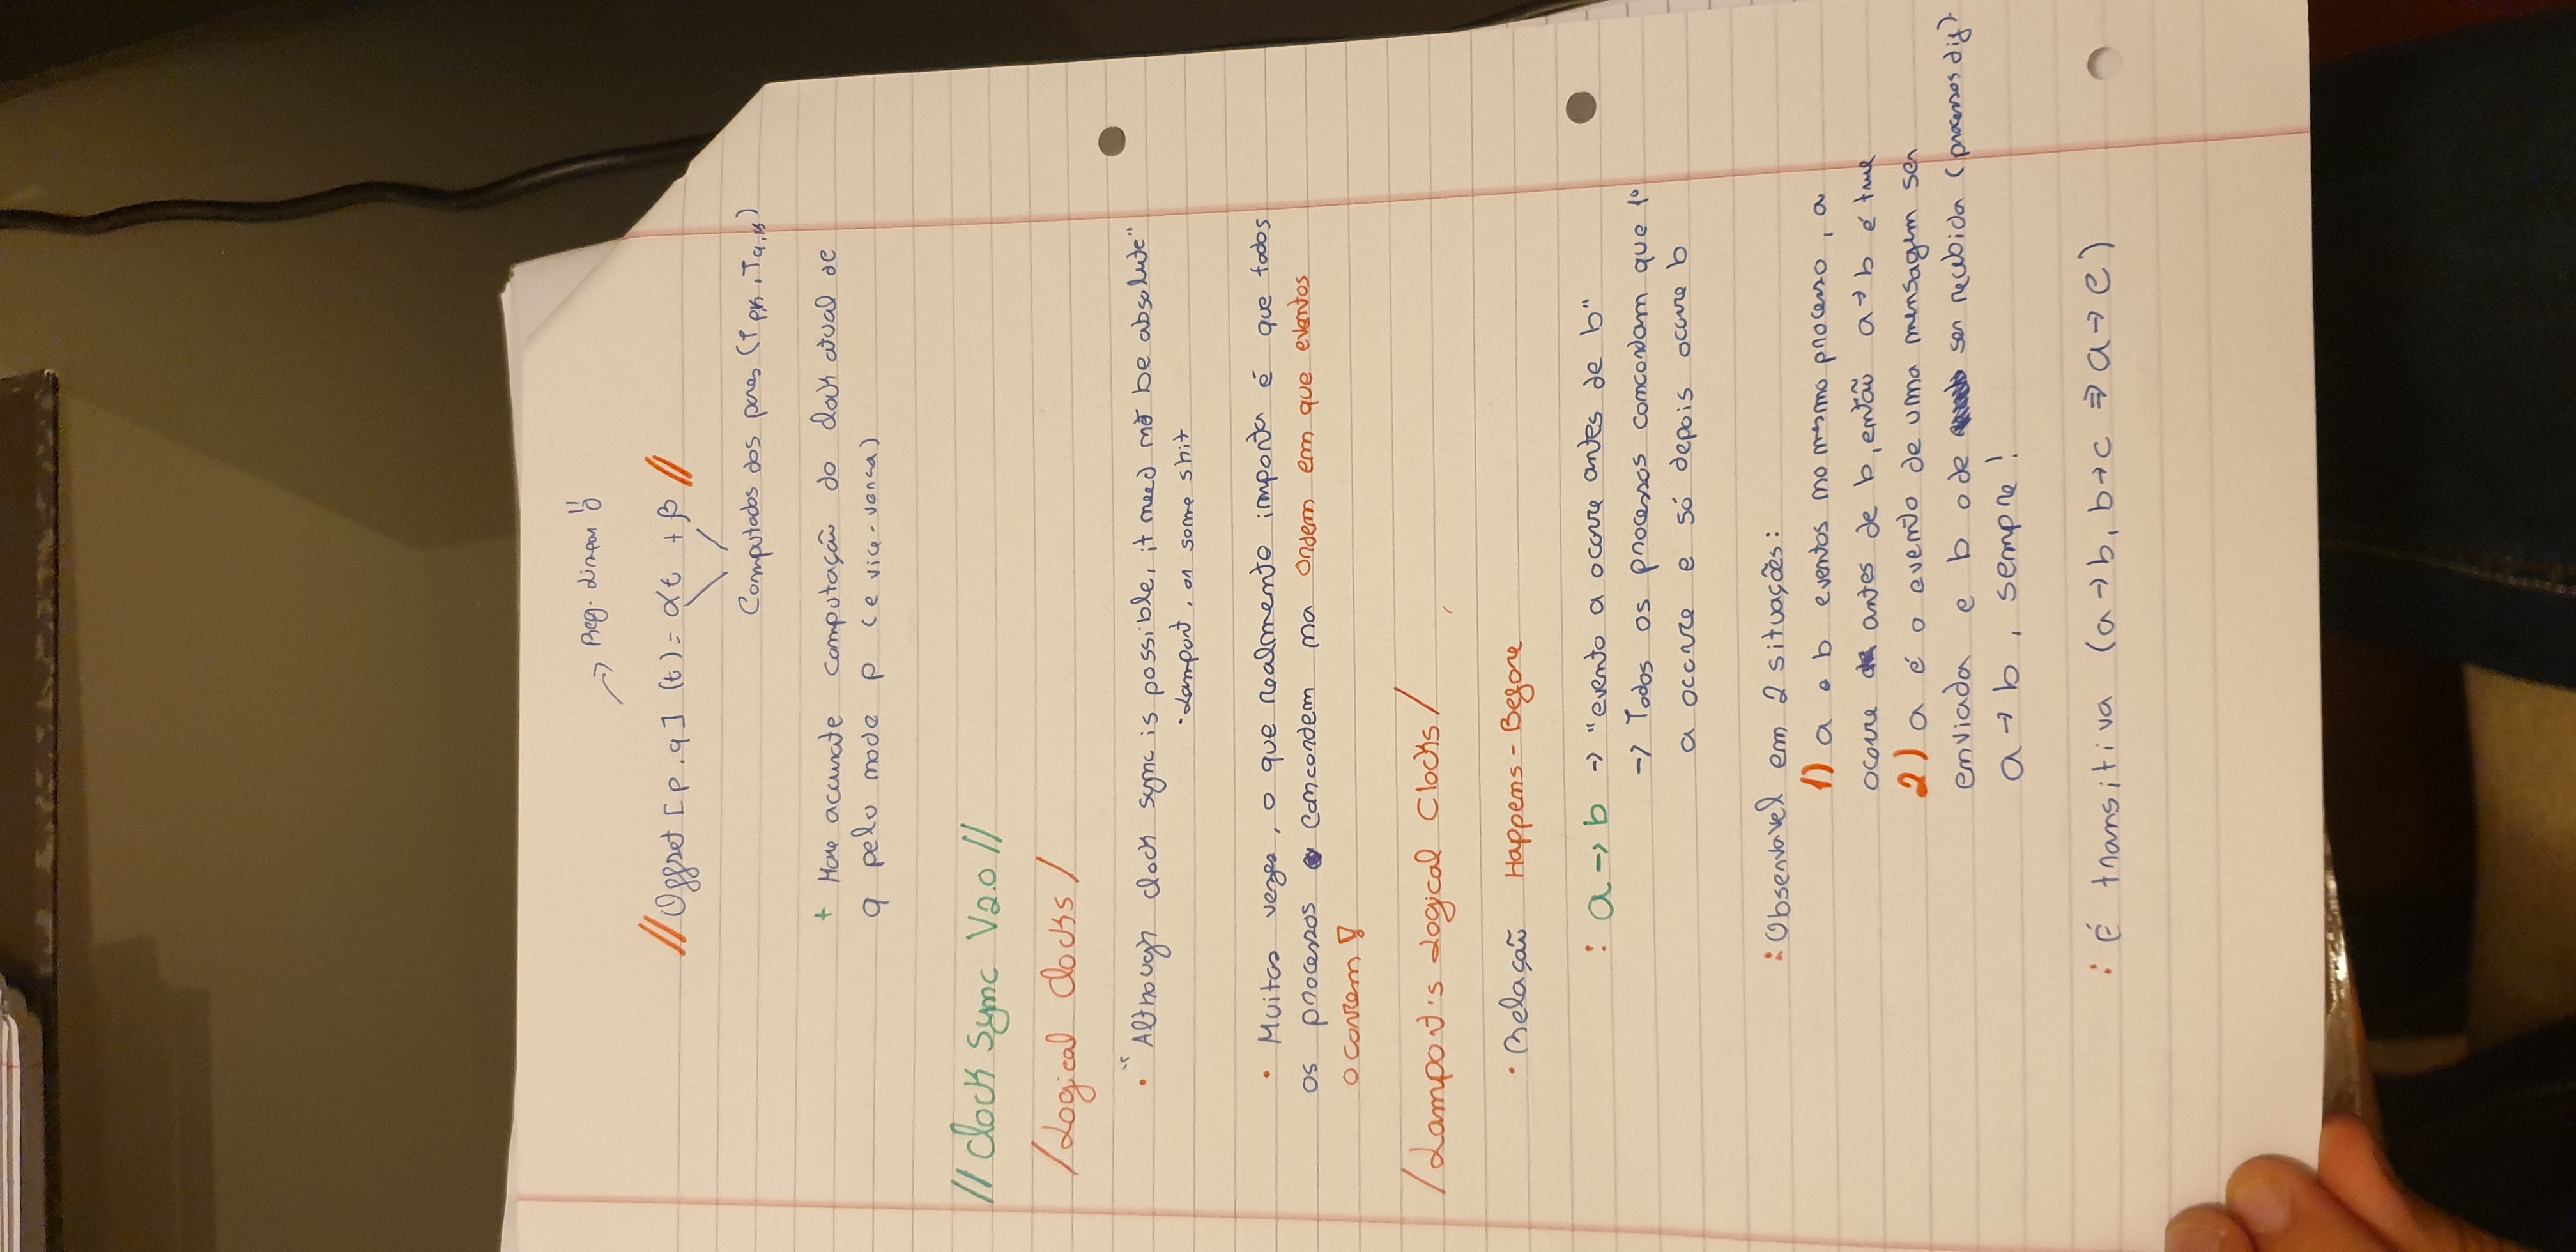 → Reg. Linear !!
// Offset [p,q] (t) = αt + β //
Computados dos pares (Tp,k, Tq,k)
+ More accurate computação do clock atual de
q pelo node p (e vice-versa)
// Clock Sync V2.0 //
/ Logical Clocks /
• "Although clock sync is possible, it need not be absolute"
• Lamport, on some shit
• Muitas vezes, o que realmente importa é que todos
os processos concordem na ordem em que eventos
ocorrem!
/ Lamport's Logical Clocks /
• Relação Happens-Before
: a → b → "evento a ocorre antes de b"
→ Todos os processos concordam que 1º
a ocorre e só depois ocorre b
: Observavel em 2 situações:
1) a e b eventos no mesmo processo, a
ocorre antes de b, então a → b é true
2) a é o evento de uma mensagem ser
enviada e b o de ser recebida (processos dif).
a → b, sempre!
: É transitiva (a → b, b → c ⇒ a → c)